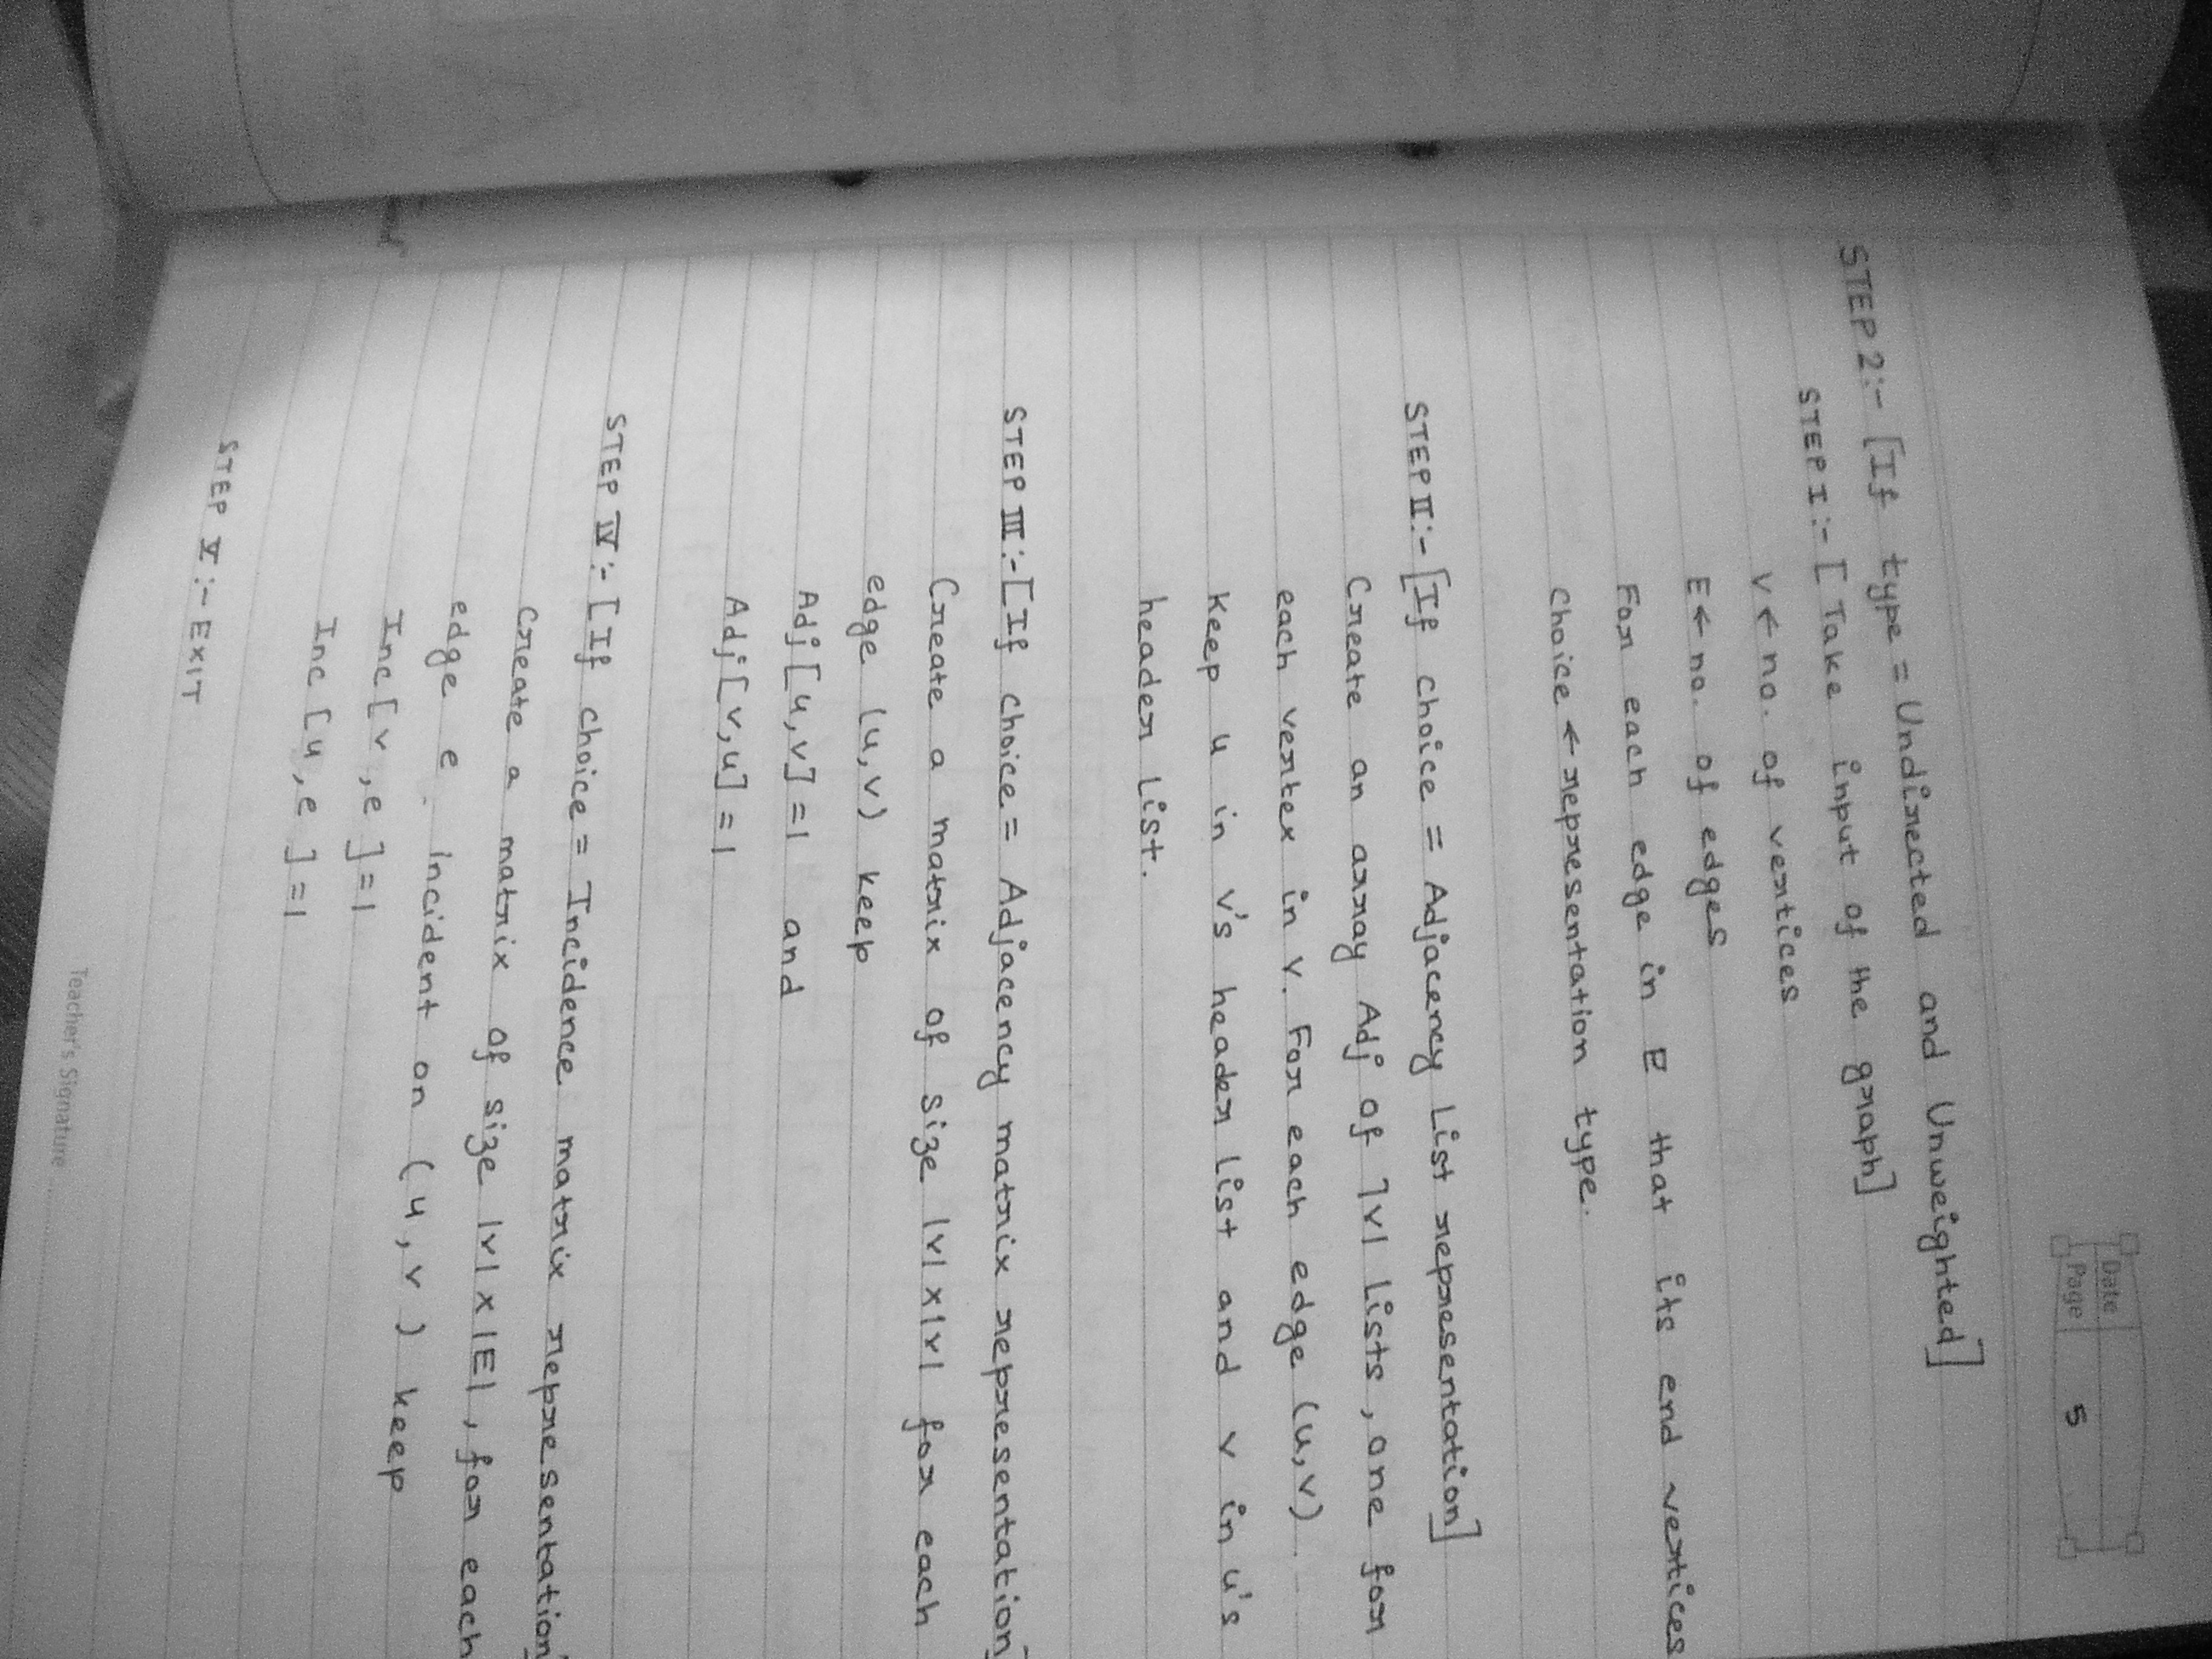 Date
Page 5
STEP 2:- [If type = Undirected and Unweighted]
STEP I:- [Take input of the graph]
V ← no. of vertices
E ← no. of edges
For each edge in E that its end vertices
Choice ← representation type.
STEP II:- [If choice = Adjacency List representation]
Create an array Adj of |V| Lists, one for
each vertex in V. For each edge (u,v)
keep u in v's header list and v in u's
header list.
STEP III:- [If choice = Adjacency matrix representation]
Create a matrix of size |V| x |V| for each
edge (u,v) keep
Adj[u,v]=1 and
Adj[v,u]=1
STEP IV:- [If choice = Incidence matrix representation]
Create a matrix of size |V| x |E|, for each
edge e incident on (u,v) keep
Inc[v,e]=1
Inc[u,e]=1
STEP V:- EXIT
Teacher's Signature